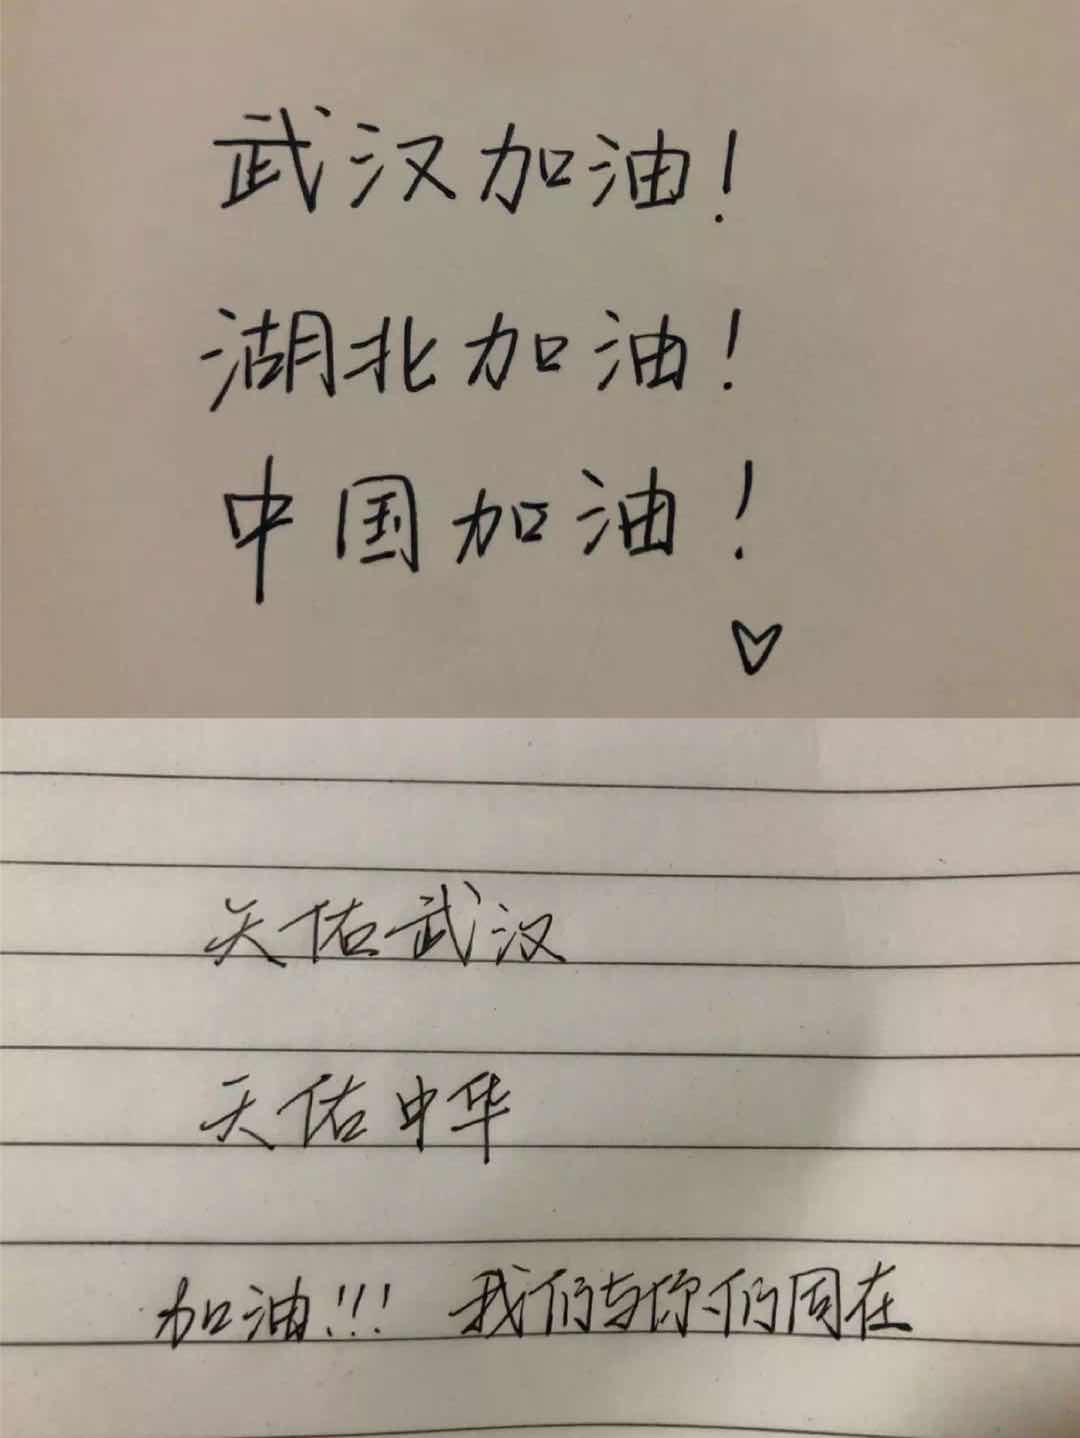 武汉加油！
湖北加油！
中国加油！
天佑武汉
天佑中华
加油!!! 我们与你们同在